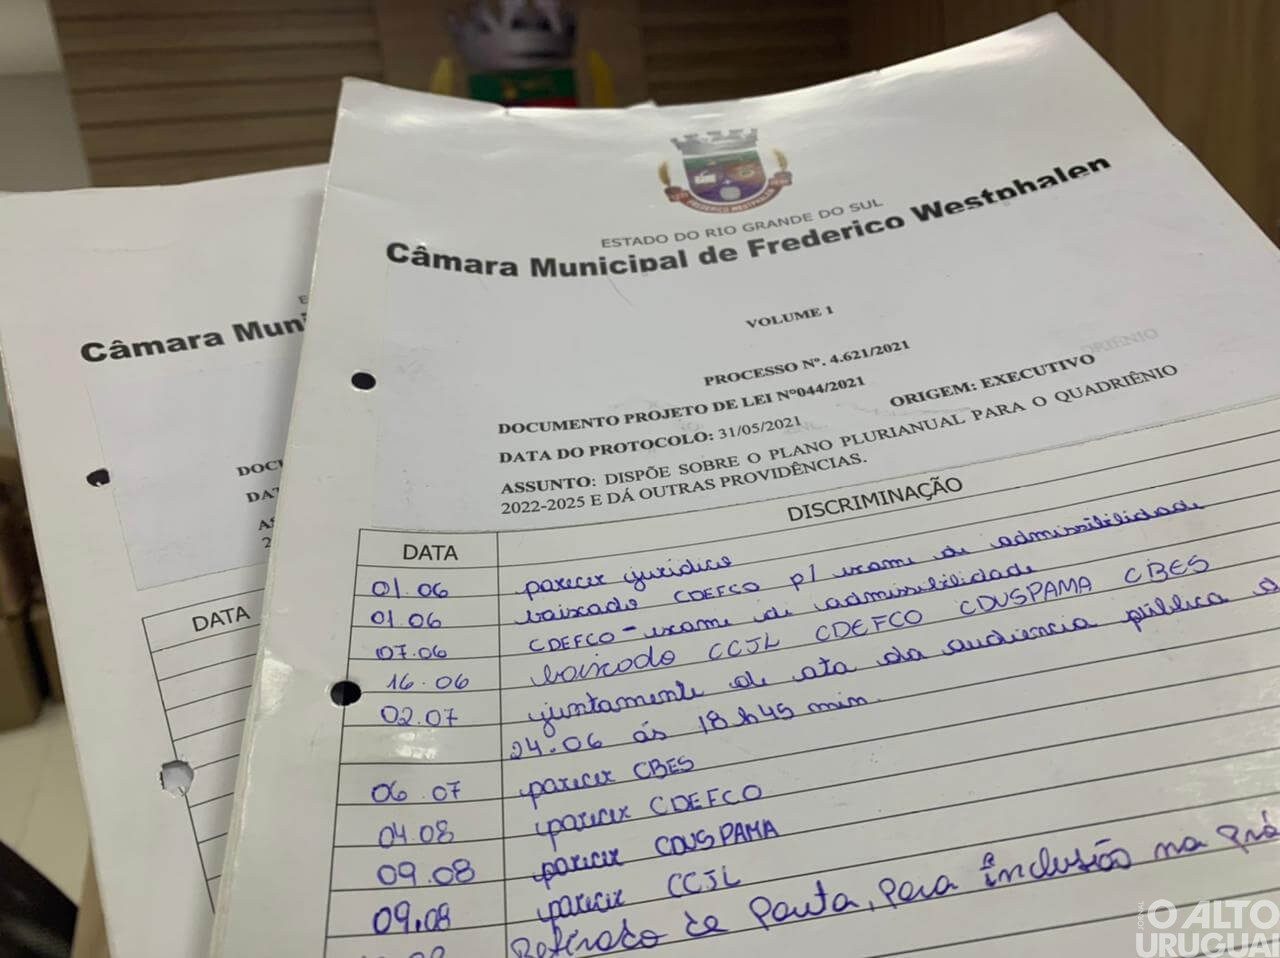 FREDERICO WESTPHALEN
ESTADO DO RIO GRANDE DO SUL
Câmara Municipal de Frederico Westphalen
VOLUME 1
PROCESSO Nº. 4.621/2021
DOCUMENTO PROJETO DE LEI Nº044/2021
ORIGEM: EXECUTIVO
DATA DO PROTOCOLO: 31/05/2021
ASSUNTO: DISPÕE SOBRE O PLANO PLURIANUAL PARA O QUADRIÊNIO
2022-2025 E DÁ OUTRAS PROVIDÊNCIAS.
DATA DISCRIMINAÇÃO
01.06 parecer jurídico
01.06 baixado CDEFCO p/ exame de admissibilidade
07.06 CDEFCO - exame di admissibilidade
16.06 baixado CCJL CDEFCO CDUSPAMA CBES
02.07 juntamente de ata da audiência pública d
24.06 ás 18 h 45 min.
06.07 parecer CBES
04.08 parecer CDEFCO
09.08 parecer CDUSPAMA
09.08 parecer CCJL
Retirado de Pauta, para inclusão na pró
Câmara Muni
DOCU
DAT
AS
2
DATA
JORNAL
O ALTO
URUGUAI